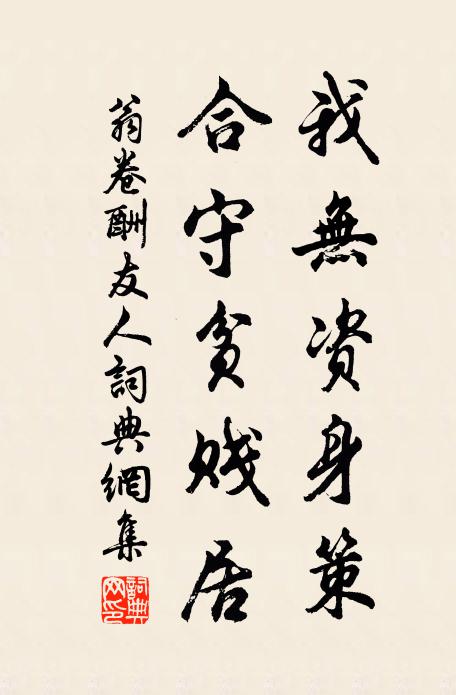 我無資身策
合守貧賤居
翁卷酬友人詞典網集
詞典
网印